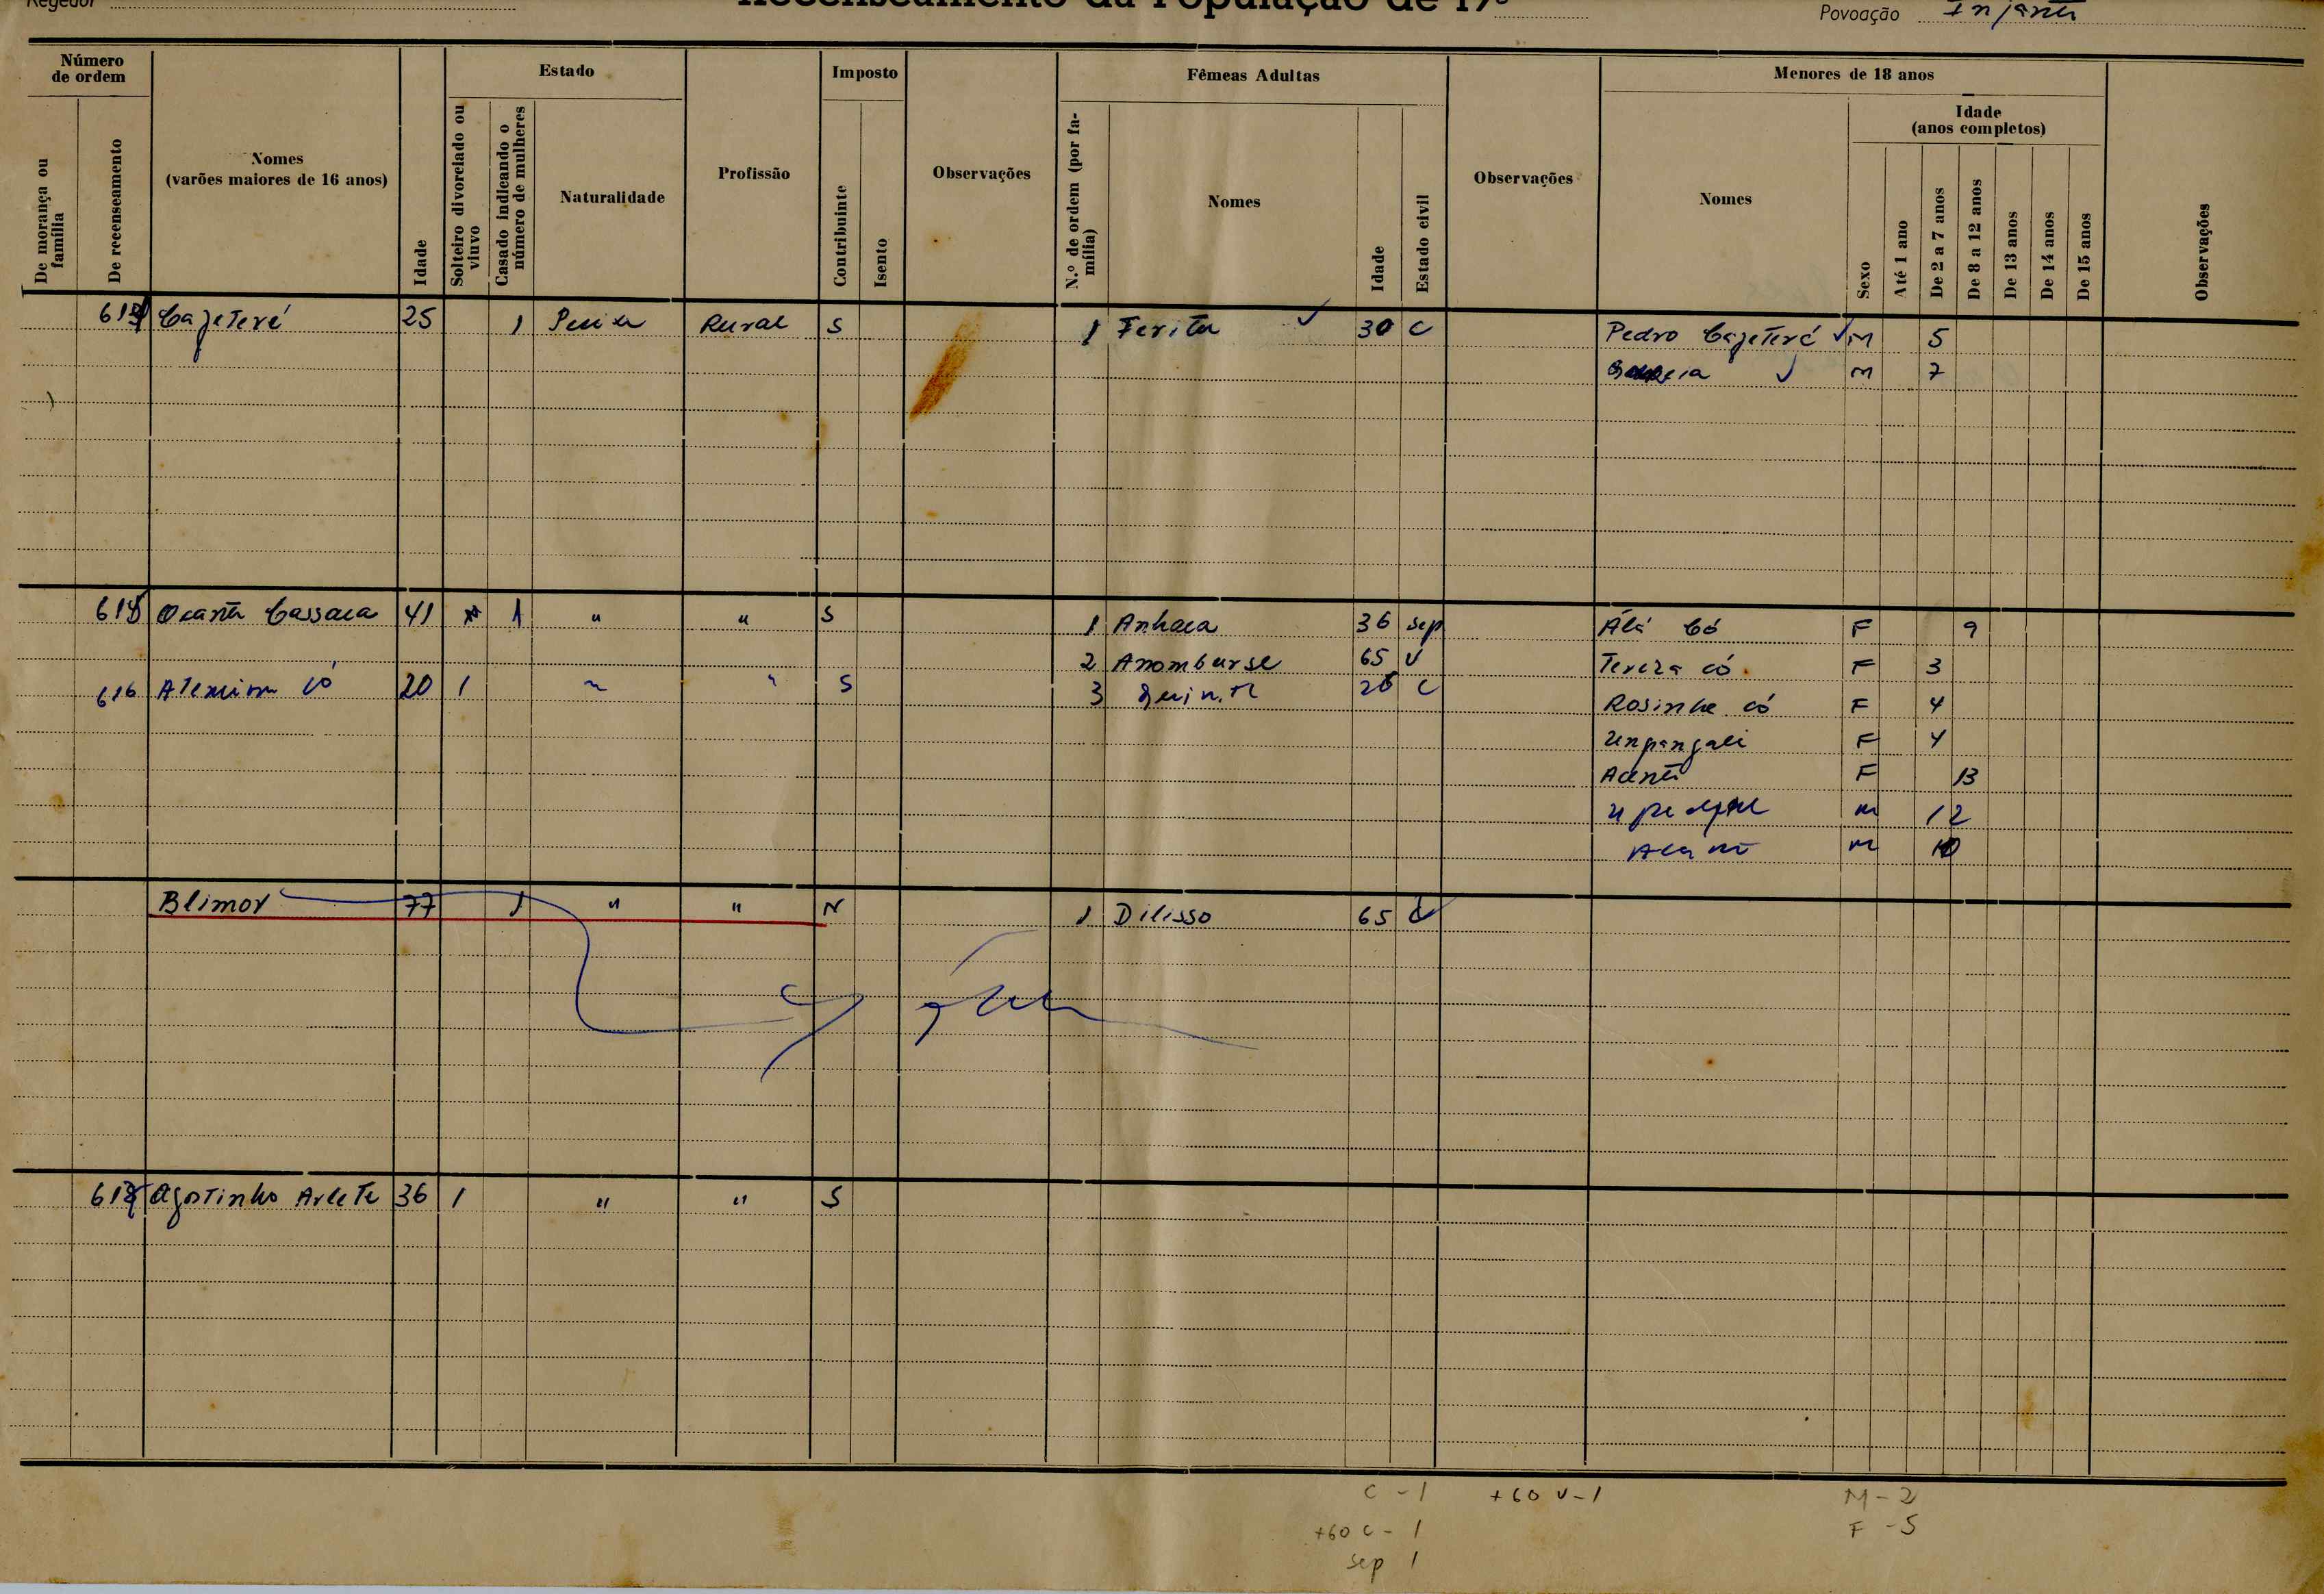 Regedor
Recenseamento da População de 19
Povoação Injanti
Número de ordem
De morança ou família
De recenseamento
Nomes
(varões maiores de 16 anos)
Idade
Estado
Solteiro divorciado ou viuvo
Casado indicando o número de mulheres
Naturalidade
Profissão
Imposto
Contribuinte
Isento
Observações
Fêmeas Adultas
N.º de ordem (por família)
Nomes
Idade
Estado civil
Observações
Menores de 18 anos
Nomes
Sexo
Idade
(anos completos)
Até 1 ano
De 2 a 7 anos
De 8 a 12 anos
De 13 anos
De 14 anos
De 15 anos
Observações
Cazeteré 25 1 Rural S 1 Ferita 30 C Pedro Cazeteré M 5
M 7
Cassaca 41 1 " " S 1 Anhaca 36 sep Álá Có F 9
2 Anomburse 65 V Tereza có F 3
616 có 20 1 " " S 3 C Rosinha có F 4
Unpangali F 4
F 13
M 12
M 10
Blimor 77 1 " " N 1 Dilisso 65
Agostinho Arlete 36 1 " " S
C - 1 +60 V - 1 M - 2
+60 C - 1 F - 5
sep 1